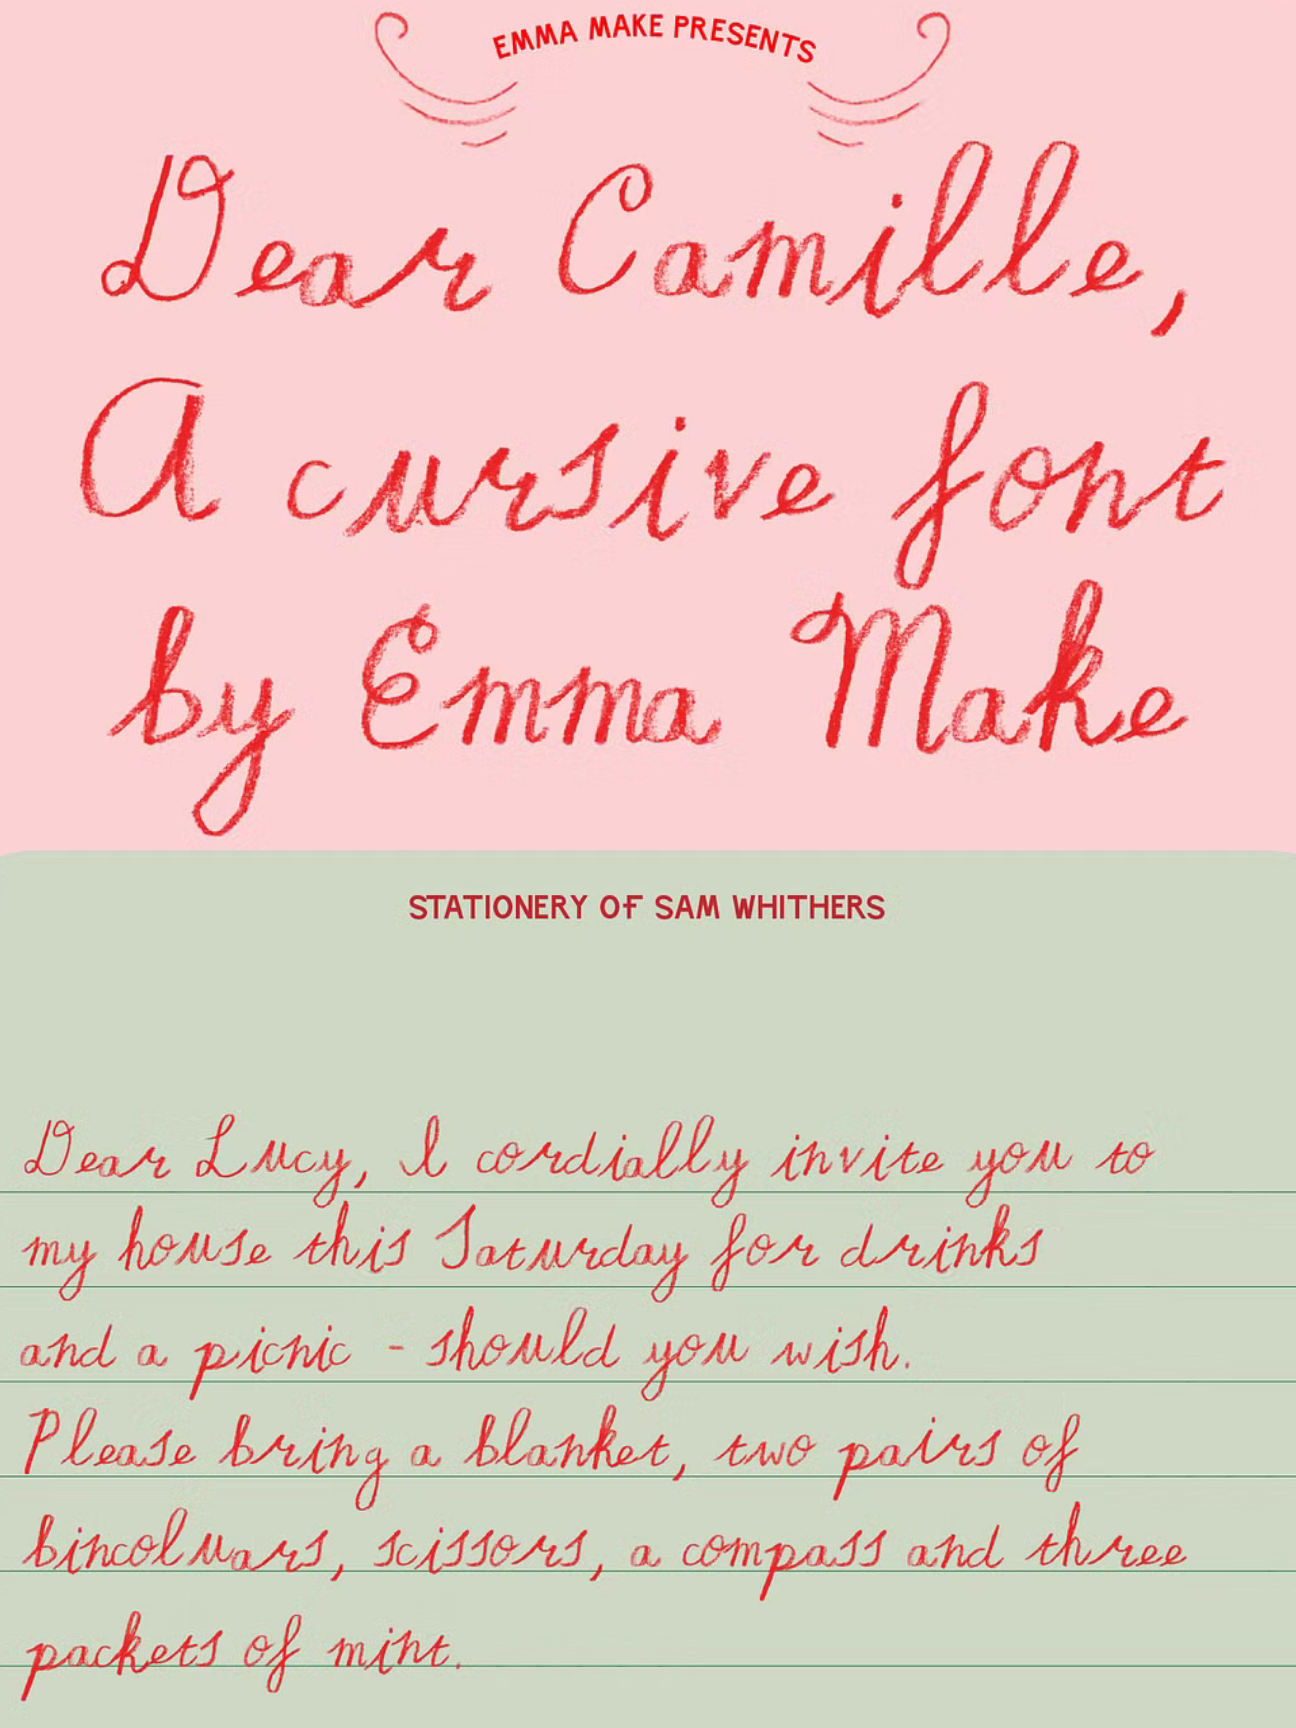 EMMA MAKE PRESENTS
Dear Camille,
A cursive font
by Emma Make
STATIONERY OF SAM WHITHERS
Dear Lucy, I cordially invite you to
my house this Saturday for drinks
and a picnic - should you wish.
Please bring a blanket, two pairs of
bincoluars, scissors, a compass and three
packets of mint.